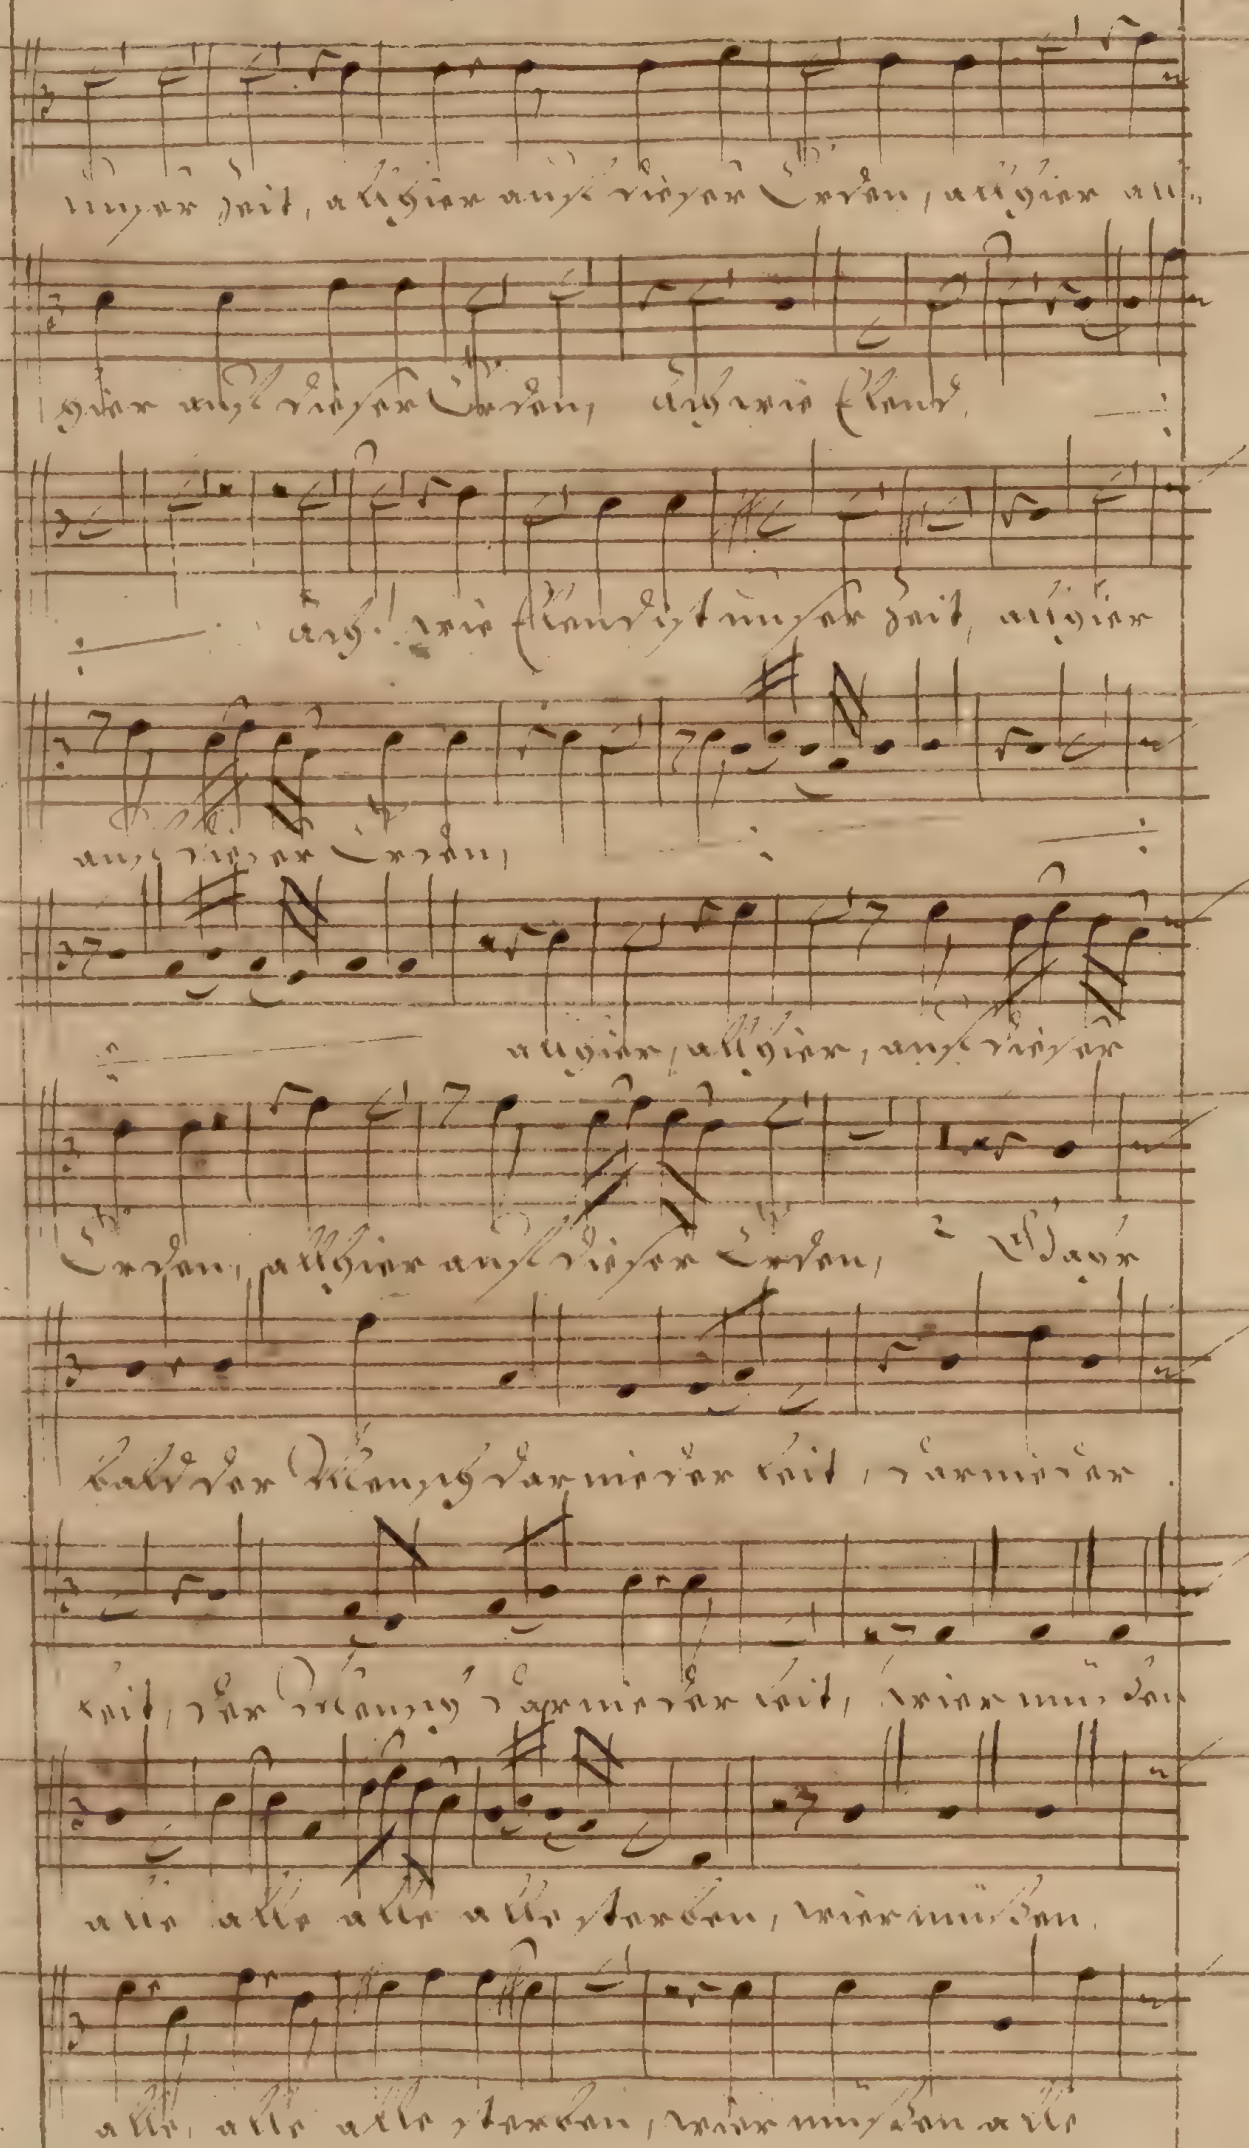 unser Zeit, allhier auf dieser Erden, allhier all-
hier auf dieser Erden, Ach wie Elend,
Ach! wie Elend ist unser Zeit, allhier
auf dieser Erden,
allhier, allhier, auf dieser
Erden, allhier auf dieser Erden, 2
bald der Mensch darnieder leit, darnieder
leit, der Mensch darnieder leit, wier müssen
alle alle alle alle sterben, wier müssen
alle, alle alle sterben, wier müssen alle